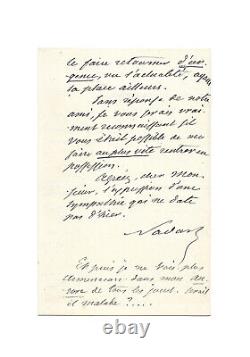 le faire retourner d'ur-
gence, vu l'actualité, ayant
la place ailleurs.
Sans réponse de notre
ami, je vous serais vrai-
ment reconnaissant s'il
vous était possible de me
faire au plus vite rentrer en
possession.
Agréez, cher Mon-
sieur, l'expression d'une
sympathie qui ne date
pas d'hier.
Nadar
Et puis je ne vois plus
dans mon
de tous les jours. Serait
il malade ?....
ebay